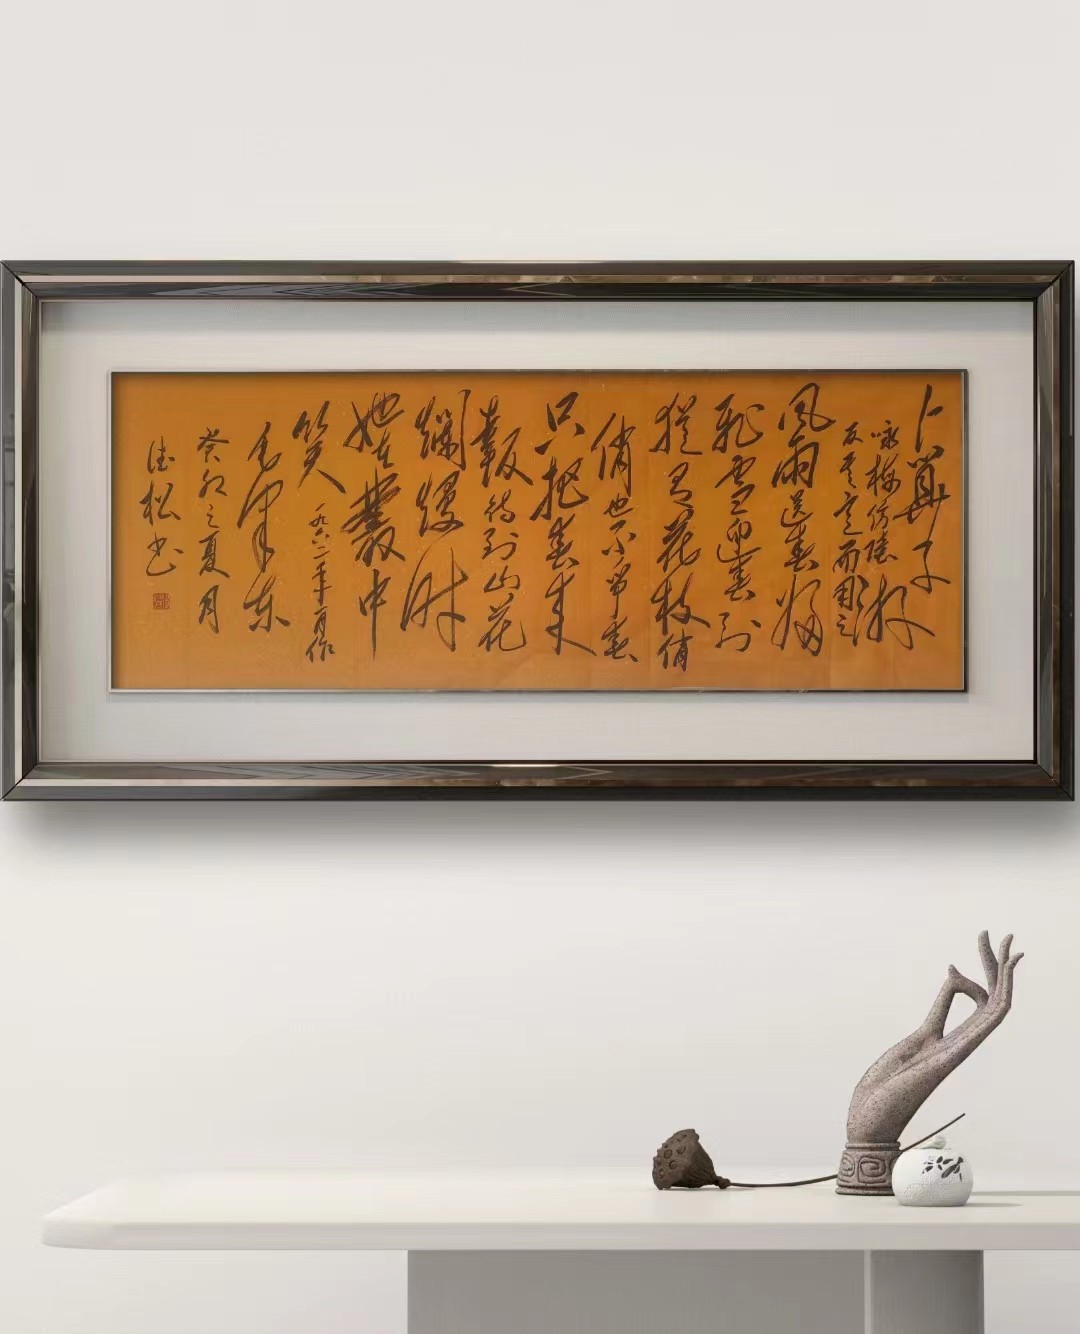 卜算子
咏梅仿陆游
反其意而用之
风雨送春归
飞雪迎春到
犹有花枝俏
俏也不争春
只把春来
报待到山花
烂熳时
她在丛中
笑
一九六二年一月作
毛泽东
癸卯之夏月
德松书